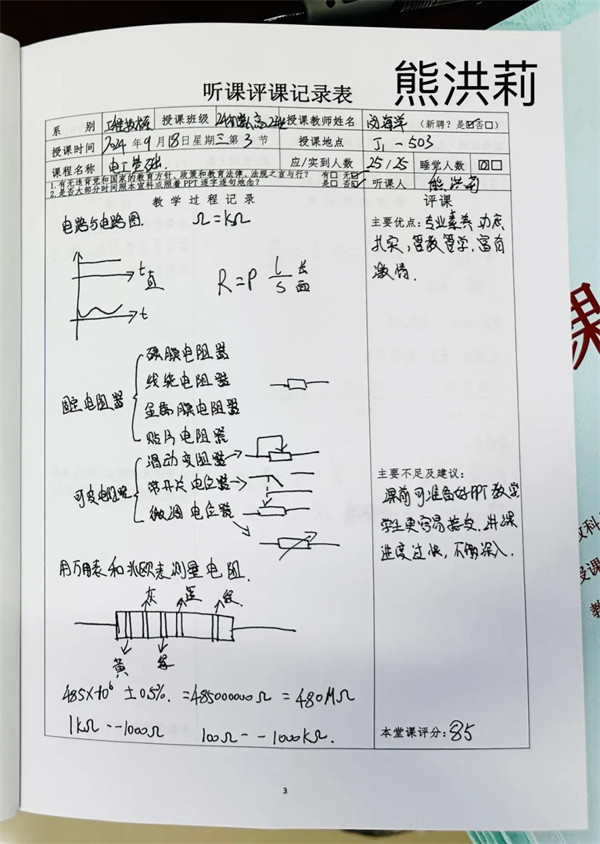 熊洪莉
听课评课记录表
系 别 授课班级 授课教师姓名 (新聘?是☑否□)
授课时间 2024年9月18日星期三第3节 授课地点 J1-503
课程名称 电工基础 应/实到人数 25/25 睡觉人数 0
1.有无违背党和国家的教育方针、政策和教育法律、法规之言与行? 有□无☑
2.是否大部分时间照本宣科或照着PPT逐字逐句地念? 是□否☑ 听课人 熊洪莉
教学过程记录 评课
电路与电路图 Ω=kΩ
主要优点:专业素养,功底
扎实,管教管学,富有
激情.
t 直
t
R=P l/S 长 面
固定电阻器
碳膜电阻器
线绕电阻器
金属膜电阻器
贴片电阻器
可变电阻器
滑动变阻器
带开关电位器
微调电位器
主要不足及建议:
课前可准备好PPT教学
学生更容易接受,讲课
进度过快,不够深入.
用万用表和兆欧表测量电阻.
灰 蓝 绿
黄 绿
485×10⁶ ±0.5%. =485000000Ω =480MΩ
1kΩ--1000Ω 100Ω--1000kΩ.
本堂课评分:85
3
课